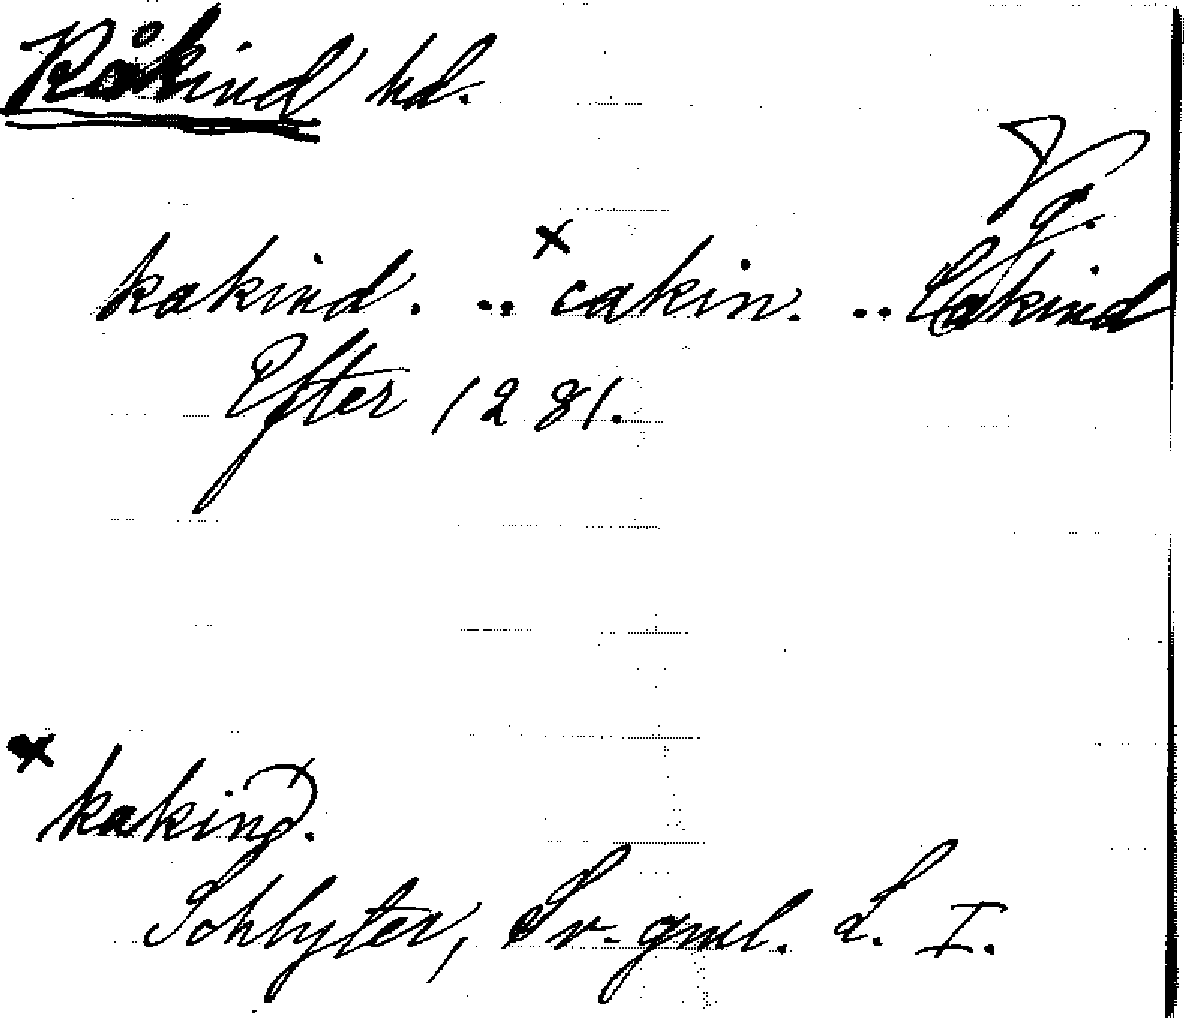 Kåkind hd.
Vg.
kakind. .. × cakin. .. Cakind
Efter 1281.
× kakind.
Schlyter, Sv. gml. L. I.